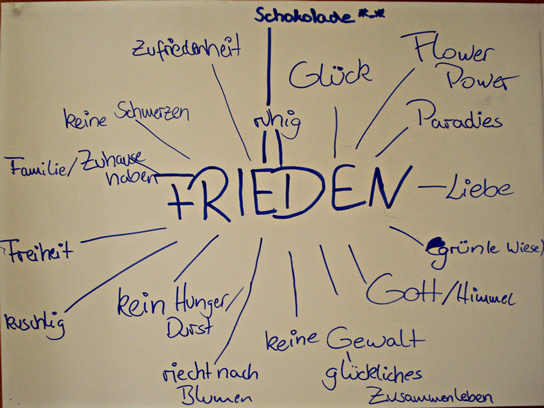 Schokolade *-*
Zufriedenheit
Glück
Flower
Power
keine Schmerzen
ruhig
Paradies
Familie/Zuhause
haben
FRIEDEN
Liebe
Freiheit
(grünle Wiese)
kuschlig
kein Hunger/
Durst
Gott/Himmel
keine Gewalt
riecht nach
Blumen
glückliches
Zusammenleben